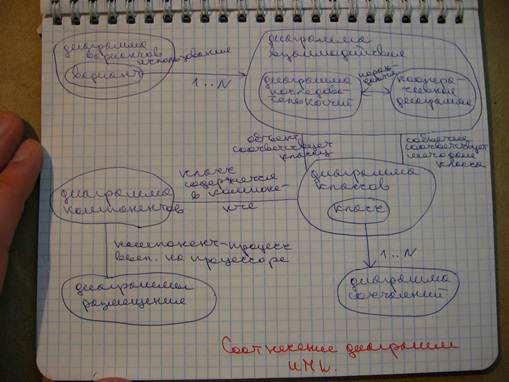 диаграмма
вариантов
использования
вариант
1...N
диаграмма
взаимодействия
диаграмма
последова-
тельностей
диаграмма
объект
соответствует
классу
сообщение
соответствует
методам
класса
диаграмма
компонентов
класс
содержится
в компоне-
нте
диаграмма
классов
класс
1...N
компонент-процесс
вып. на процессоре
диаграмма
размещения
диаграмма
состояний
Соотнесение диаграмм
UML.